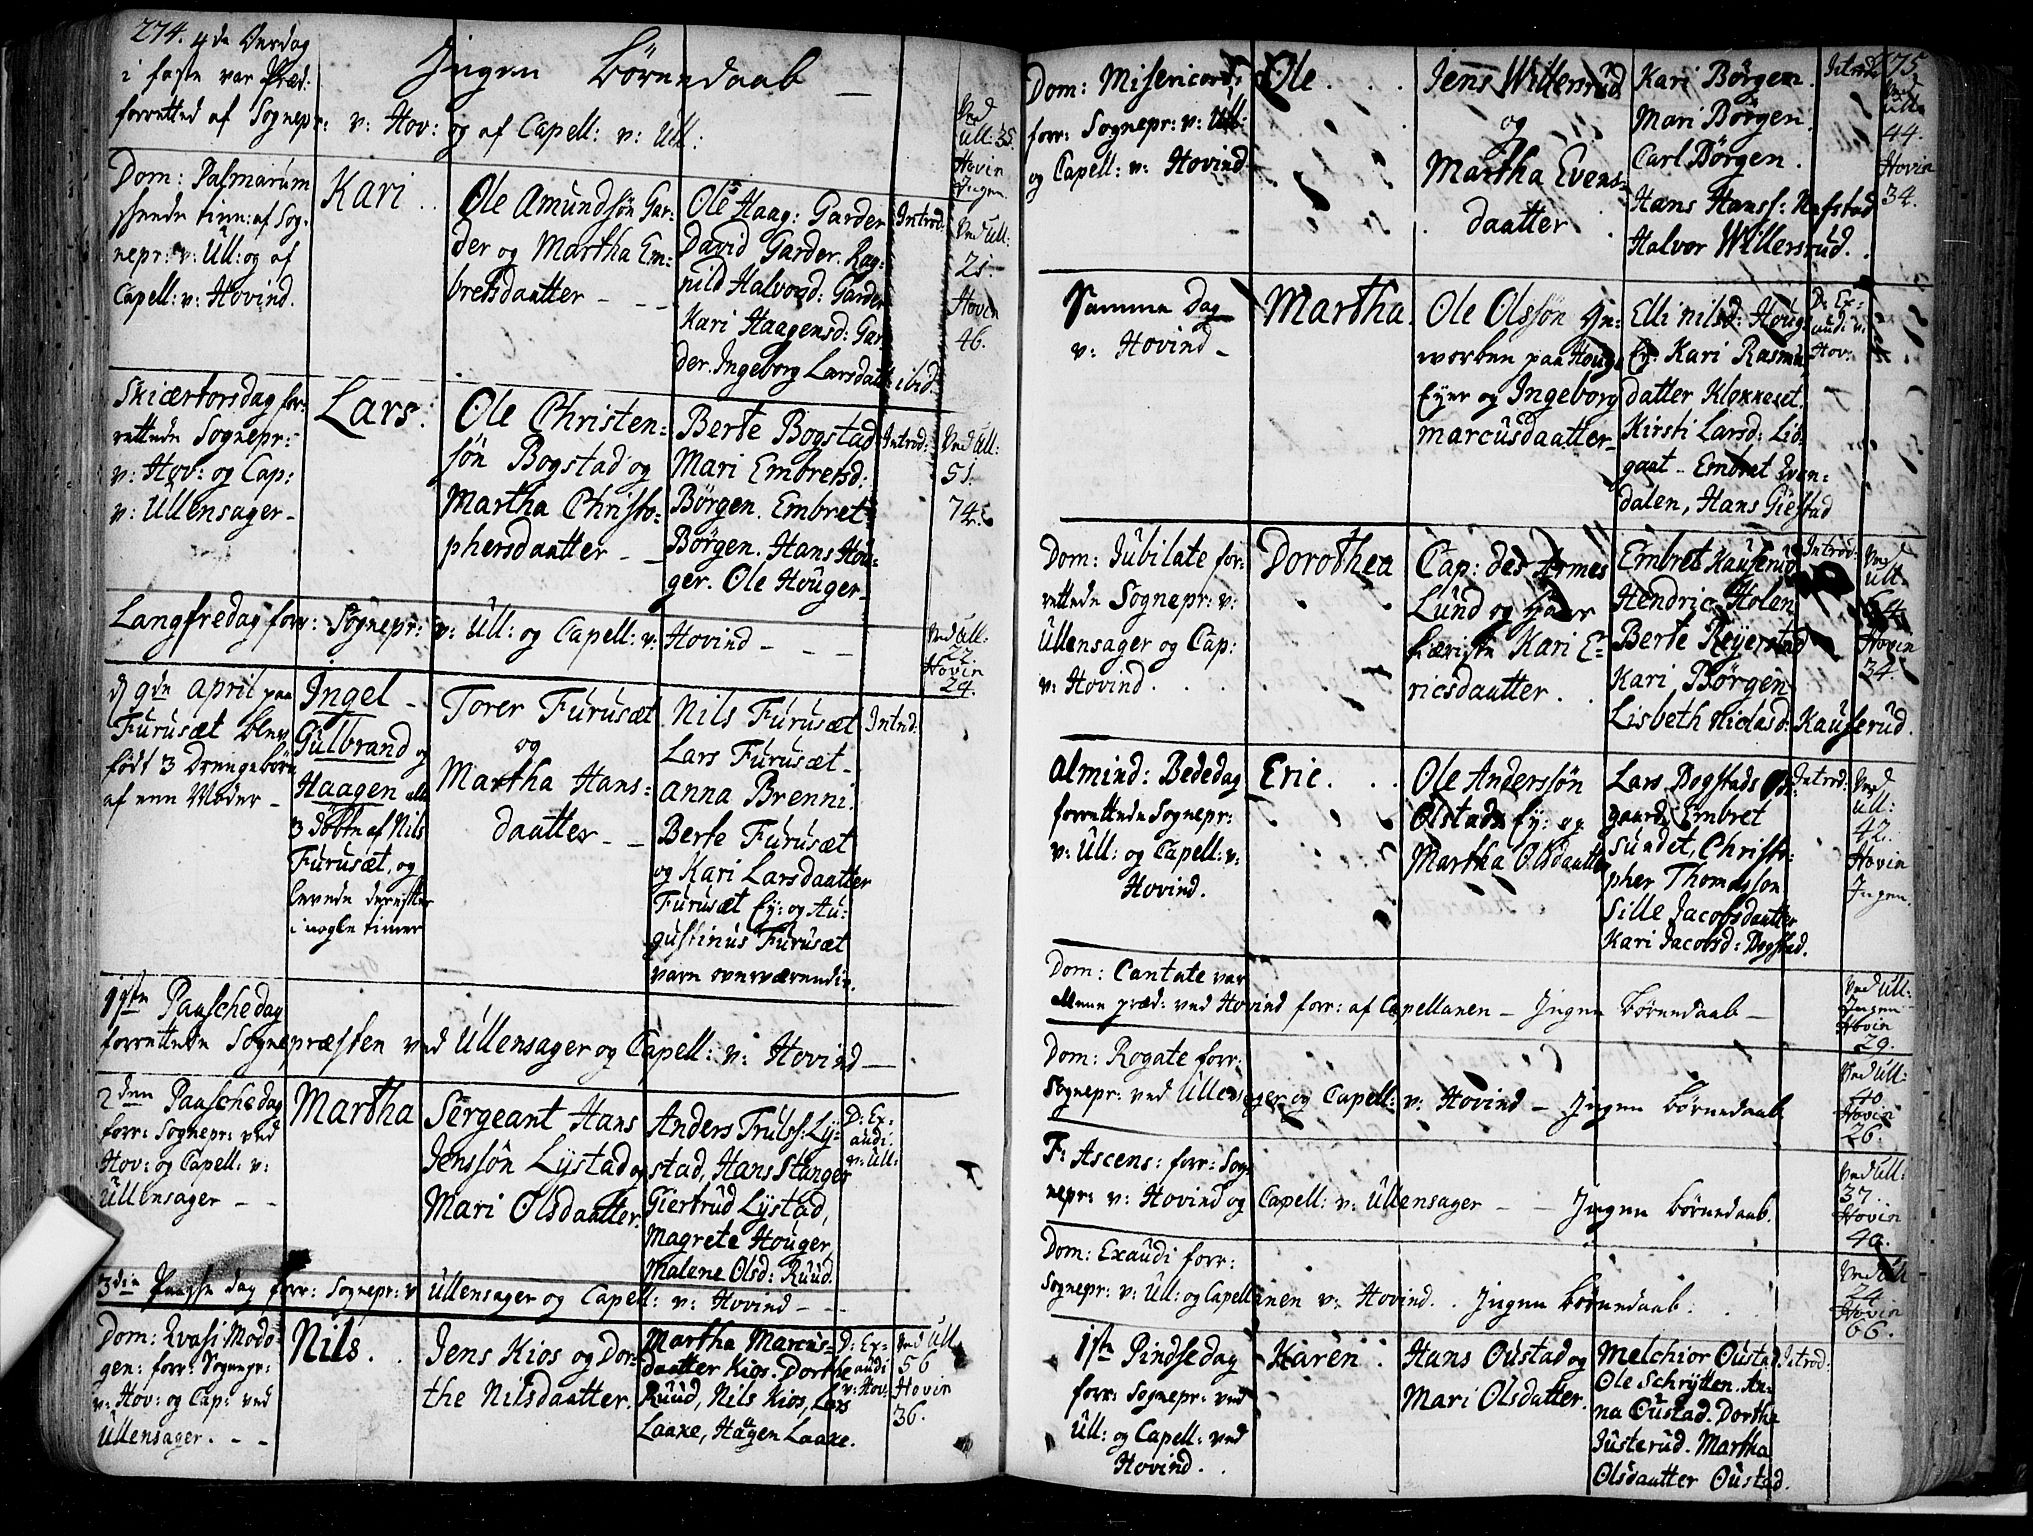 274. 4de Onsdag
i faste var Præd:
forretted af Sognepr: v: Hov: og af Capell: v: Ull.
Ingen Börnedaab —
Ved
Ull: 35.
Hovin
Ingen.
Dom: Palmarum
af Sog-
nepr: v: Ull: og af
Capell: v: Hovind.
Kari . .
Ole Amundsön Gar-
der og Martha Em-
bretsdaatter - - -
Ole Haag: Garder
David Garder. Rag-
nild Halvorsd: Garder
Kari Haagensd: Gar-
der. Ingeborg Larsdatt: ibid:
Introd:
Ved Ull:
21.
Hovin
46.
Skiærtorsdag for-
rettede Sognepr:
v: Hov: og Cap:
v: Ullensager -
Lars.
Ole Christen-
sön Bogstad og
Martha Christo-
phersdaatter - -
Berte Bogstad
Mari Embretsd:
Börgen. Embret
Börgen. Hans Hou-
ger. Ole Houger -
Introd:
Ved Ull:
51.
74
Langfredag forr: Sognepr: v: Ull: og Capell: v: Hovind - - -
Ved Ull:
22.
Hovin
24.
d 9de April paa
Furusæt blev
födt 3 Drengebörn
af een Moder -
Ingel -
Gulbrand og
Haagen alle
3 döbte af Nils
Furusæt, og
levede derefter
i nogle timer
Torer Furusæt
og
Martha Hans-
daatter - -
Nils Furusæt
Lars Furusæt -
Anna Brenni.
Berte Furusæt
og Kari Larsdaatter
Furusæt Ey: og Au-
gustinus Furusæt
vare overværende.
Introd:
1ste Paaschedag
forrettede Sognepræsten ved Ullensager og Capell: v: Hovind —
2den Paaschedag
forr: Sognepr: ved
Hov: og Capell: v:
Ullensager - -
Martha
Sergeant Hans
Jenssön Lystad og
Mari Olsdaatter.
Anders Truls: Ly-
stad, Hans Stanger
Giertrud Lystad,
Magrete Houger,
Malene Olsd: Ruud.
D: Ex-
audi.
v: Ull:
3die Paaske dag forr: Sognepr: v Ullensager og Capell: v: Hovind - - -
Dom: Qvasi: Modo-
gen: forr: Sognepr:
v: Hov: og Cap: ved
Ullensager. - -
Nils. .
Jens Kios og Dor-
the Nilsdaatter.
Martha Marcus-
daatter Kios. Dorthe
Ruud, Nils Kios, Lars
Laake, Hagen Laake.
D: Ex-
audi
v: Hov:
Ved Ull
56
Hovin
36.
275.
Dom: Misericord:
forr: Sognepr: v: Ull:
og Capell: v: Hovind
Ole . . .
Jens Willersrud
og
Martha Evens-
daatter .
Kari Börgen.
Mari Börgen.
Carl Börgen.
Hans Hanss: Nafstad
Halvor Willersrud. .
Introd:
Ved
Ull:
44.
Hovin
34.
Samme Dag
v: Hovind -
Martha.
Ole Olssön In-
worben paa Houge
Eyer og Ingeborg
Marcusdaatter -
Elli Nilsd: Houg
Ey: Kari Rasmus
datter Klokkeset.
Kirsti Larsd: Lio-
gaat - Embret
dalen, Hans Giestad
D: Ex-
audi v:
Hov:
Dom: Jubilate for-
rettede Sognepr: v:
Ullensager og Cap:
v: Hovind. . . .
Dorothea
Cap: des Armes
Lund og
Kari E-
ricsdaatter . .
Embret Kauserud
Hendric Holen
Berte Reyerstad
Kari Börgen
Lisbeth Niclasd: Kauserud.
Introd:
Ved
Ull
64
Hovin
34
Almind: Bededag
forrettede Sognepr:
v: Ull: og Capell: v:
Hovind.
Eric. . .
Ole Anderssön
Olstads Ey: og
Martha Olsdaatter
Lars Dogstads
gaard, Embret
Sundet, Christo-
pher Thomasson
Sille Jacobsdaatter
Kari Jacobsd: Dogstad.
Introd:
Ved
Ull:
42.
Hovin
Ingen.
Dom: Cantate var
allene præd: ved Hovind forr: af Capellanen - Ingen Börnedaab -
Ved Ull:
Ingen
Hovin
29.
Dom: Rogate forr:
Sognepr: ved Ullensager og Capell: v: Hovind - Ingen Börnedaab
Ved Ull:
40
Hovin
26.
F: Ascens: forr: Sog-
nepr: v: Hovind og Capell: v: Ullensager - - Ingen Börnedaab.
Ved Ull:
37.
Hovin
40.
Dom: Exaudi forr:
Sognepr: v: Ull: og Capellanen v: Hovind. . Ingen Börnedaab: .
Ved Ull
24
Hovin
66.
1ste Pindsedag
forr: Sognepr: ved
Ull: og Capell: ved
Hovind. .
Karen .
Hans Oustad og
Mari Olsdatter.
Melchior Oustad
Ole Schrytten. An-
na Oustad. Dorthe
Justerud. Martha
Olsdaatter Oustad.
Introd: